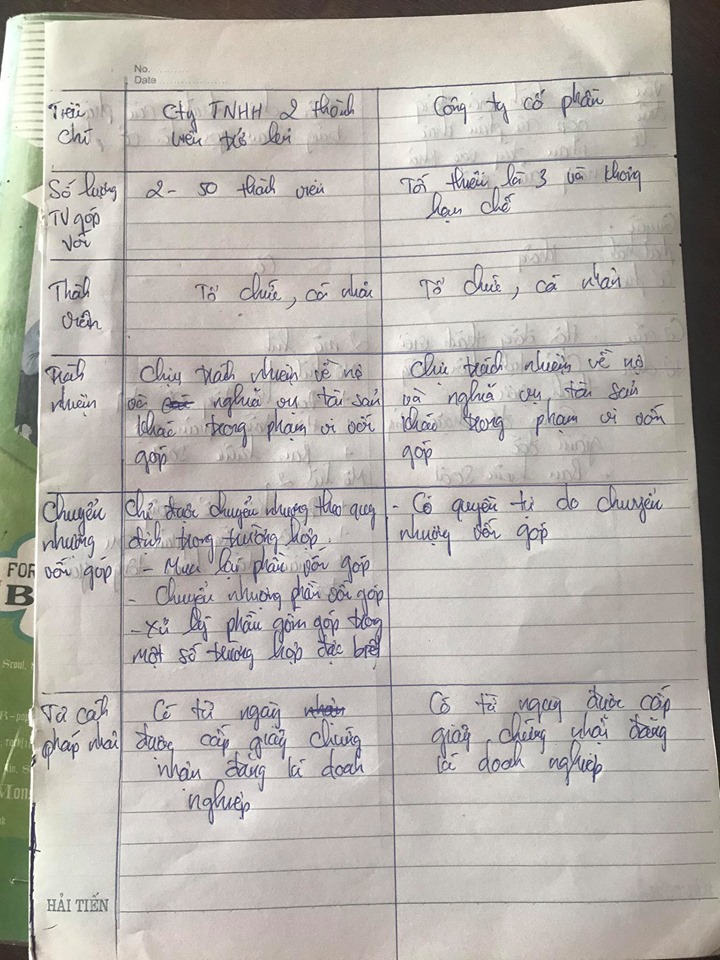 No.
Date
Tiêu chí
Cty TNHH 2 thành
viên trở lên
Công ty cổ phần
Số lượng
TV góp
vốn
2 - 50 thành viên
Tối thiểu là 3 và không
hạn chế
Thành
viên
Tổ chức, cá nhân
Tổ chức, cá nhân
Trách
nhiệm
Chịu trách nhiệm về nợ
và các nghĩa vụ tài sản
khác trong phạm vi vốn
góp
Chịu trách nhiệm về nợ
và nghĩa vụ tài sản
khác trong phạm vi vốn
góp
Chuyển
nhượng
vốn góp
Chỉ được chuyển nhượng theo quy
định trong trường hợp.
- Mua lại phần vốn góp
- Chuyển nhượng phần vốn góp
- Xử lý phần góp trong
một số trường hợp đặc biệt
- Có quyền tự do chuyển
nhượng vốn góp
Tư cách
pháp nhân
Có từ ngày nhận
được cấp giấy chứng
nhận đăng kí doanh
nghiệp
Có từ ngày được cấp
giấy chứng nhận đăng
kí doanh nghiệp
HẢI TIẾN
FOR
B
Seoul,